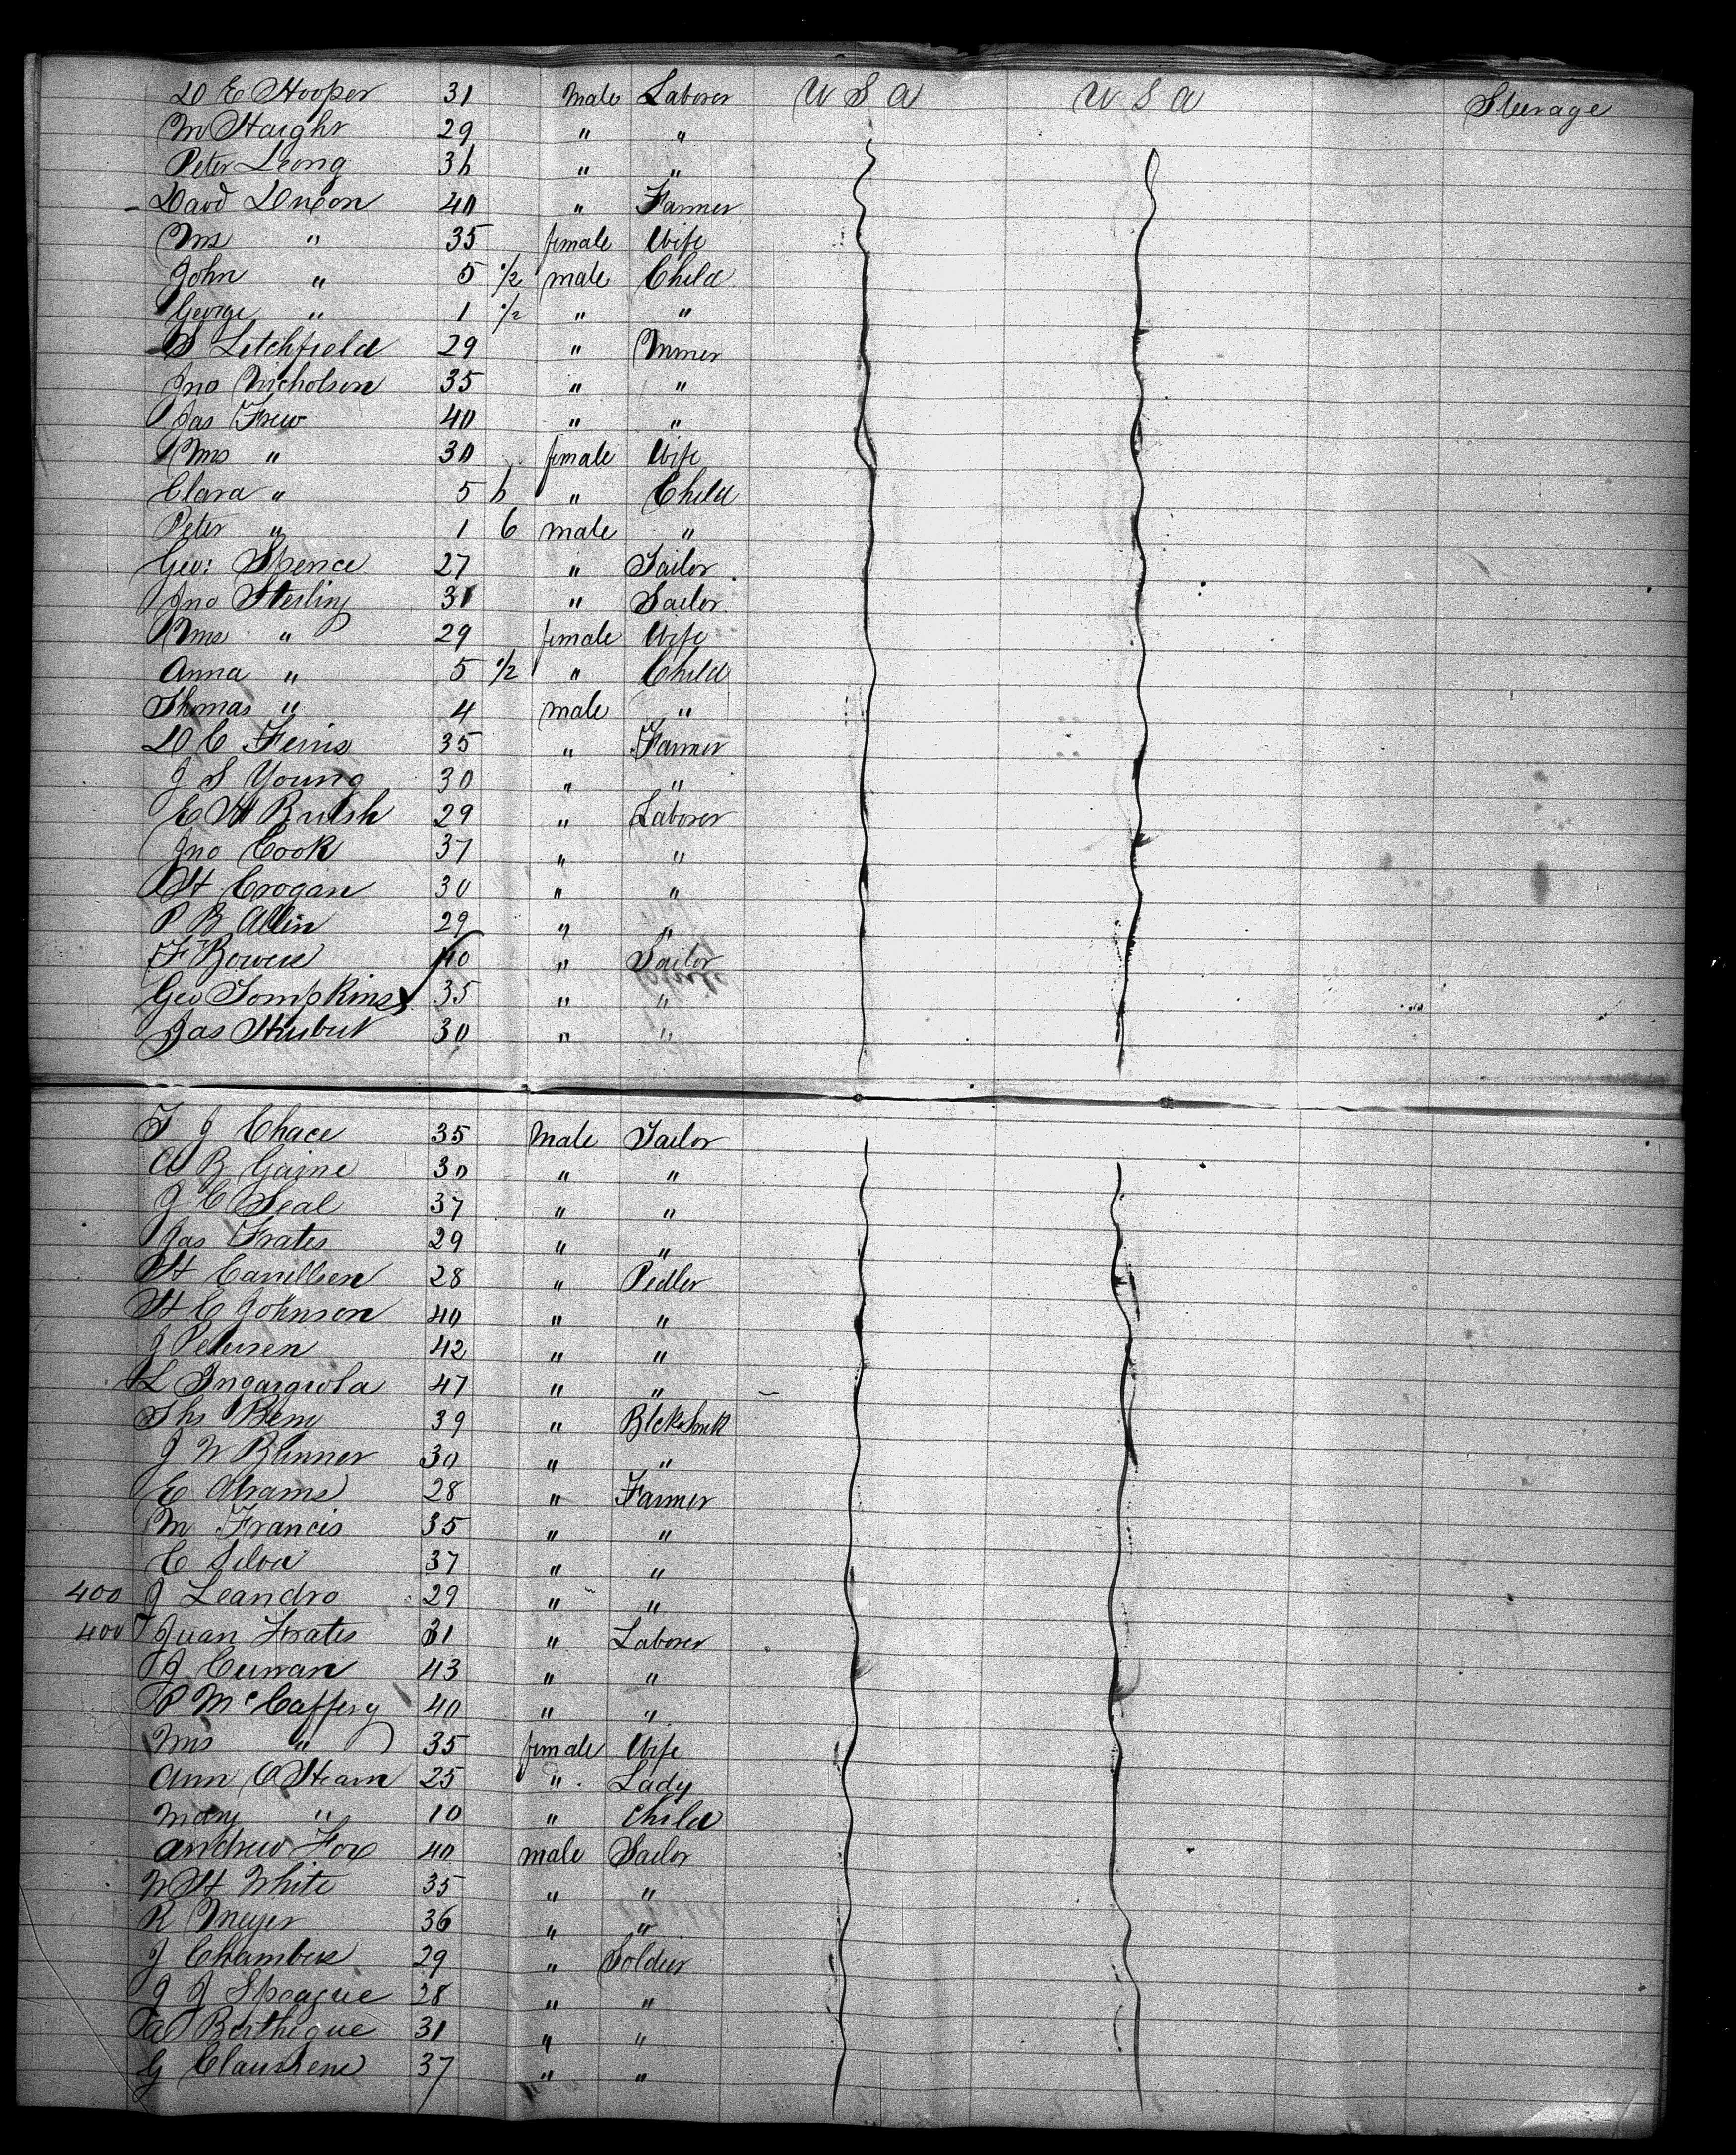 D E Hooper 31 Male Laborer U S A U S A Steerage
M Haight 29 " "
Peter Leong 36 " "
Davd Dixon 40 " Farmer
Mrs " 35 female Wife
John " 5 1/2 male Child
George " 1 1/2 " "
S Letchfield 29 " Miner
Jno Nicholson 35 " "
Jas Frew 40 " "
Mrs " 30 female Wife
Clara " 5 6 " Child
Peter " 1 6 male "
Geo: Spence 27 " Tailor
Jno Sterling 31 " Sailor
Mrs " 29 female Wife
Anna " 5 1/2 " Child
Thomas " 4 male "
D C Ferris 35 " Farmer
J S Young 30 " "
E W 29 " Laborer
Jno Cook 37 " "
H Crogan 30 " "
P B Allin 29 " "
F Bowen 40 " Sailor
Geo Tompkins 35 " "
Jas 30 " "
T J Chace 35 Male Tailor
A B Gaine 30 " "
J C Seal 37 " "
Jas Frates 29 " "
H 28 " Pedler
H C Johnson 40 " "
J Petersen 42 " "
L Ingargiola 47 " "
Ths 39 " Blcksmth
J W Blinner 30 " "
E Abrams 28 " Farmer
M Francis 35 " "
C Silva 37 " "
400 J Leandro 29 " "
400 Juan Frates 31 " Laborer
J Curran 43 " "
P McCaffery 40 " "
Mrs " 35 female Wife
Ann O Hearn 25 " Lady
Mary " 10 " Child
Andrew Fox 40 male Sailor
W H White 35 " "
R Meyer 36 " "
J Chambers 29 " Soldier
J J Sprague 28 " "
A Berthique 31 " "
G Claussene 37 " "